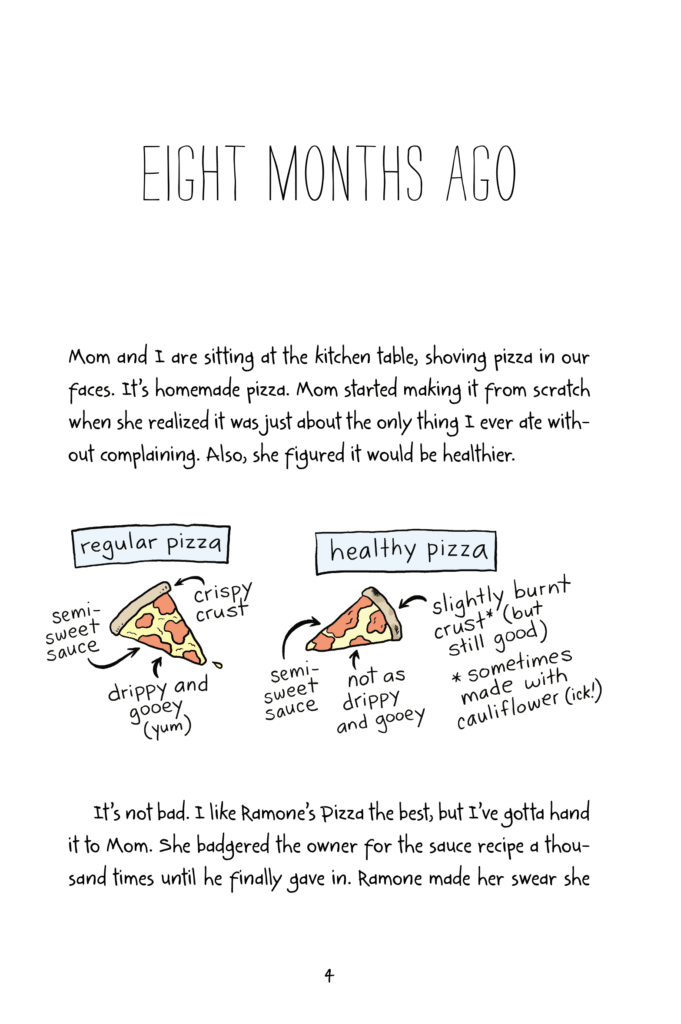 EIGHT MONTHS AGO
Mom and I are sitting at the kitchen table, shoving pizza in our
faces. It's homemade pizza. Mom started making it from scratch
when she realized it was just about the only thing I ever ate with-
out complaining. Also, she figured it would be healthier.
regular pizza
crispy
crust
semi-
sweet
sauce
drippy and
gooey
(yum)
healthy pizza
slightly burnt
crust* (but
still good)
* sometimes
made with
cauliflower (ick!)
semi-
sweet
sauce
not as
drippy
and gooey
It's not bad. I like Ramone's Pizza the best, but I've gotta hand
it to Mom. She badgered the owner for the sauce recipe a thou-
sand times until he finally gave in. Ramone made her swear she
4